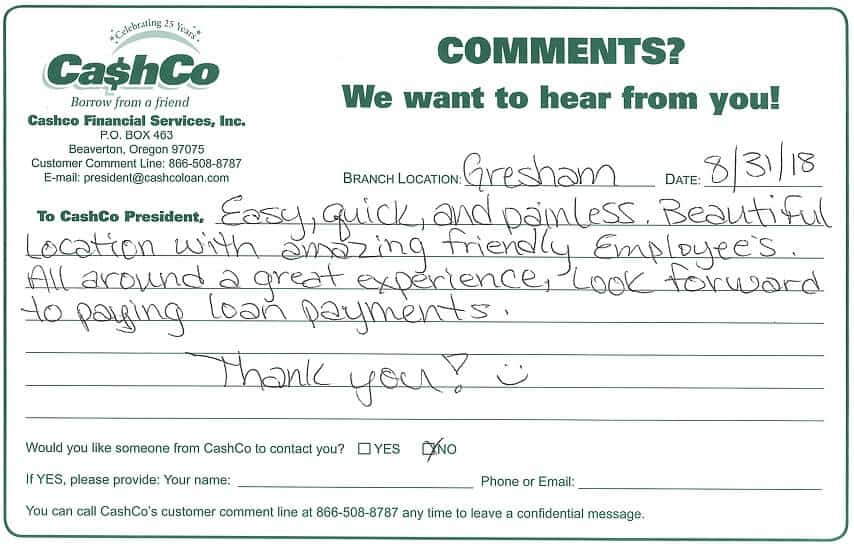 Celebrating 25 Years
Ca$hCo
Borrow from a friend
Cashco Financial Services, Inc.
P.O. BOX 463
Beaverton, Oregon 97075
Customer Comment Line: 866-508-8787
E-mail: president@cashcoloan.com
COMMENTS?
We want to hear from you!
BRANCH LOCATION: Gresham DATE: 8/31/18
To CashCo President, Easy, quick, and painless. Beautiful
Location with amazing friendly Employee's.
All around a great experience, Look forward
to paying loan payments.
Thank you! :)
Would you like someone from CashCo to contact you? YES NO
If YES, please provide: Your name: Phone or Email:
You can call CashCo's customer comment line at 866-508-8787 any time to leave a confidential message.